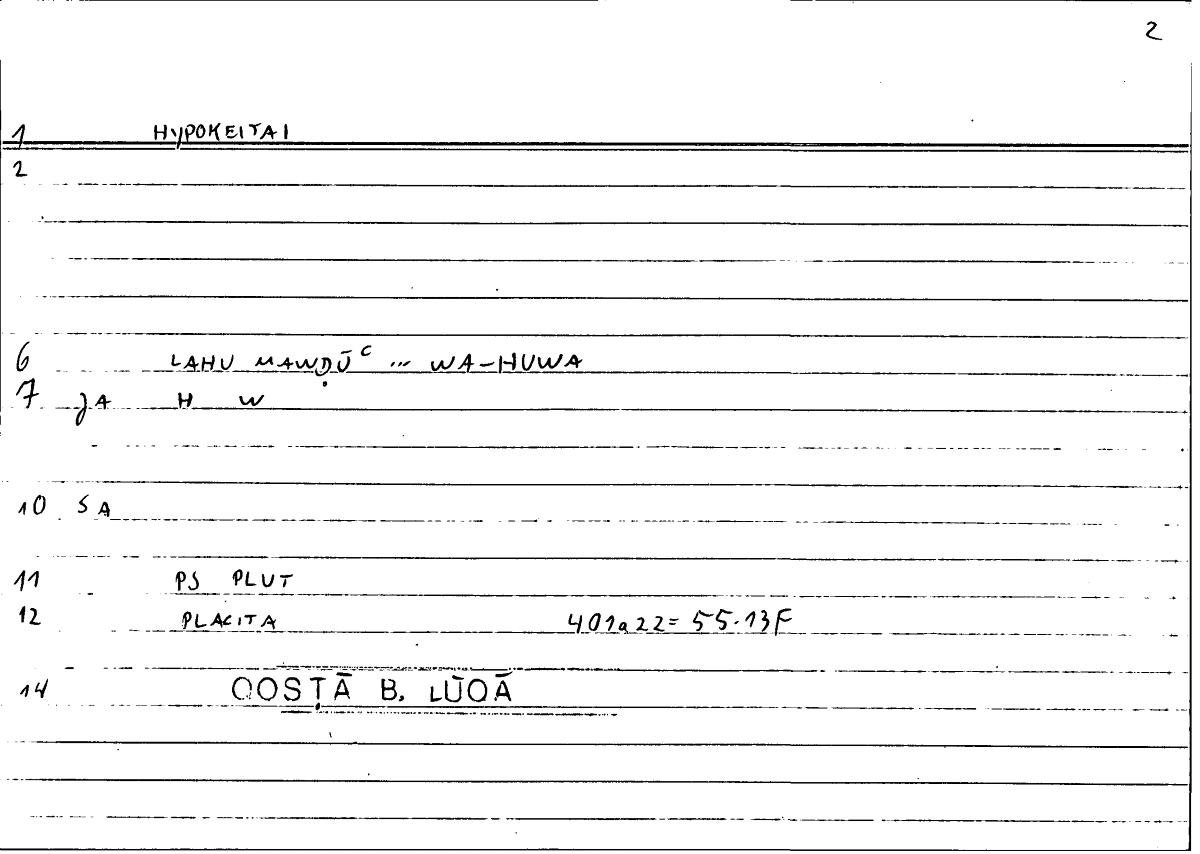 2
1 HYPOKEITAI
2
6 LAHU MAWḌŪᶜ ... WA-HUWA
7 JA H W
10 SA
11 PS PLUT
12 PLACITA 401a22= 55.13F
14 QOSṬĀ B. LŪQĀ